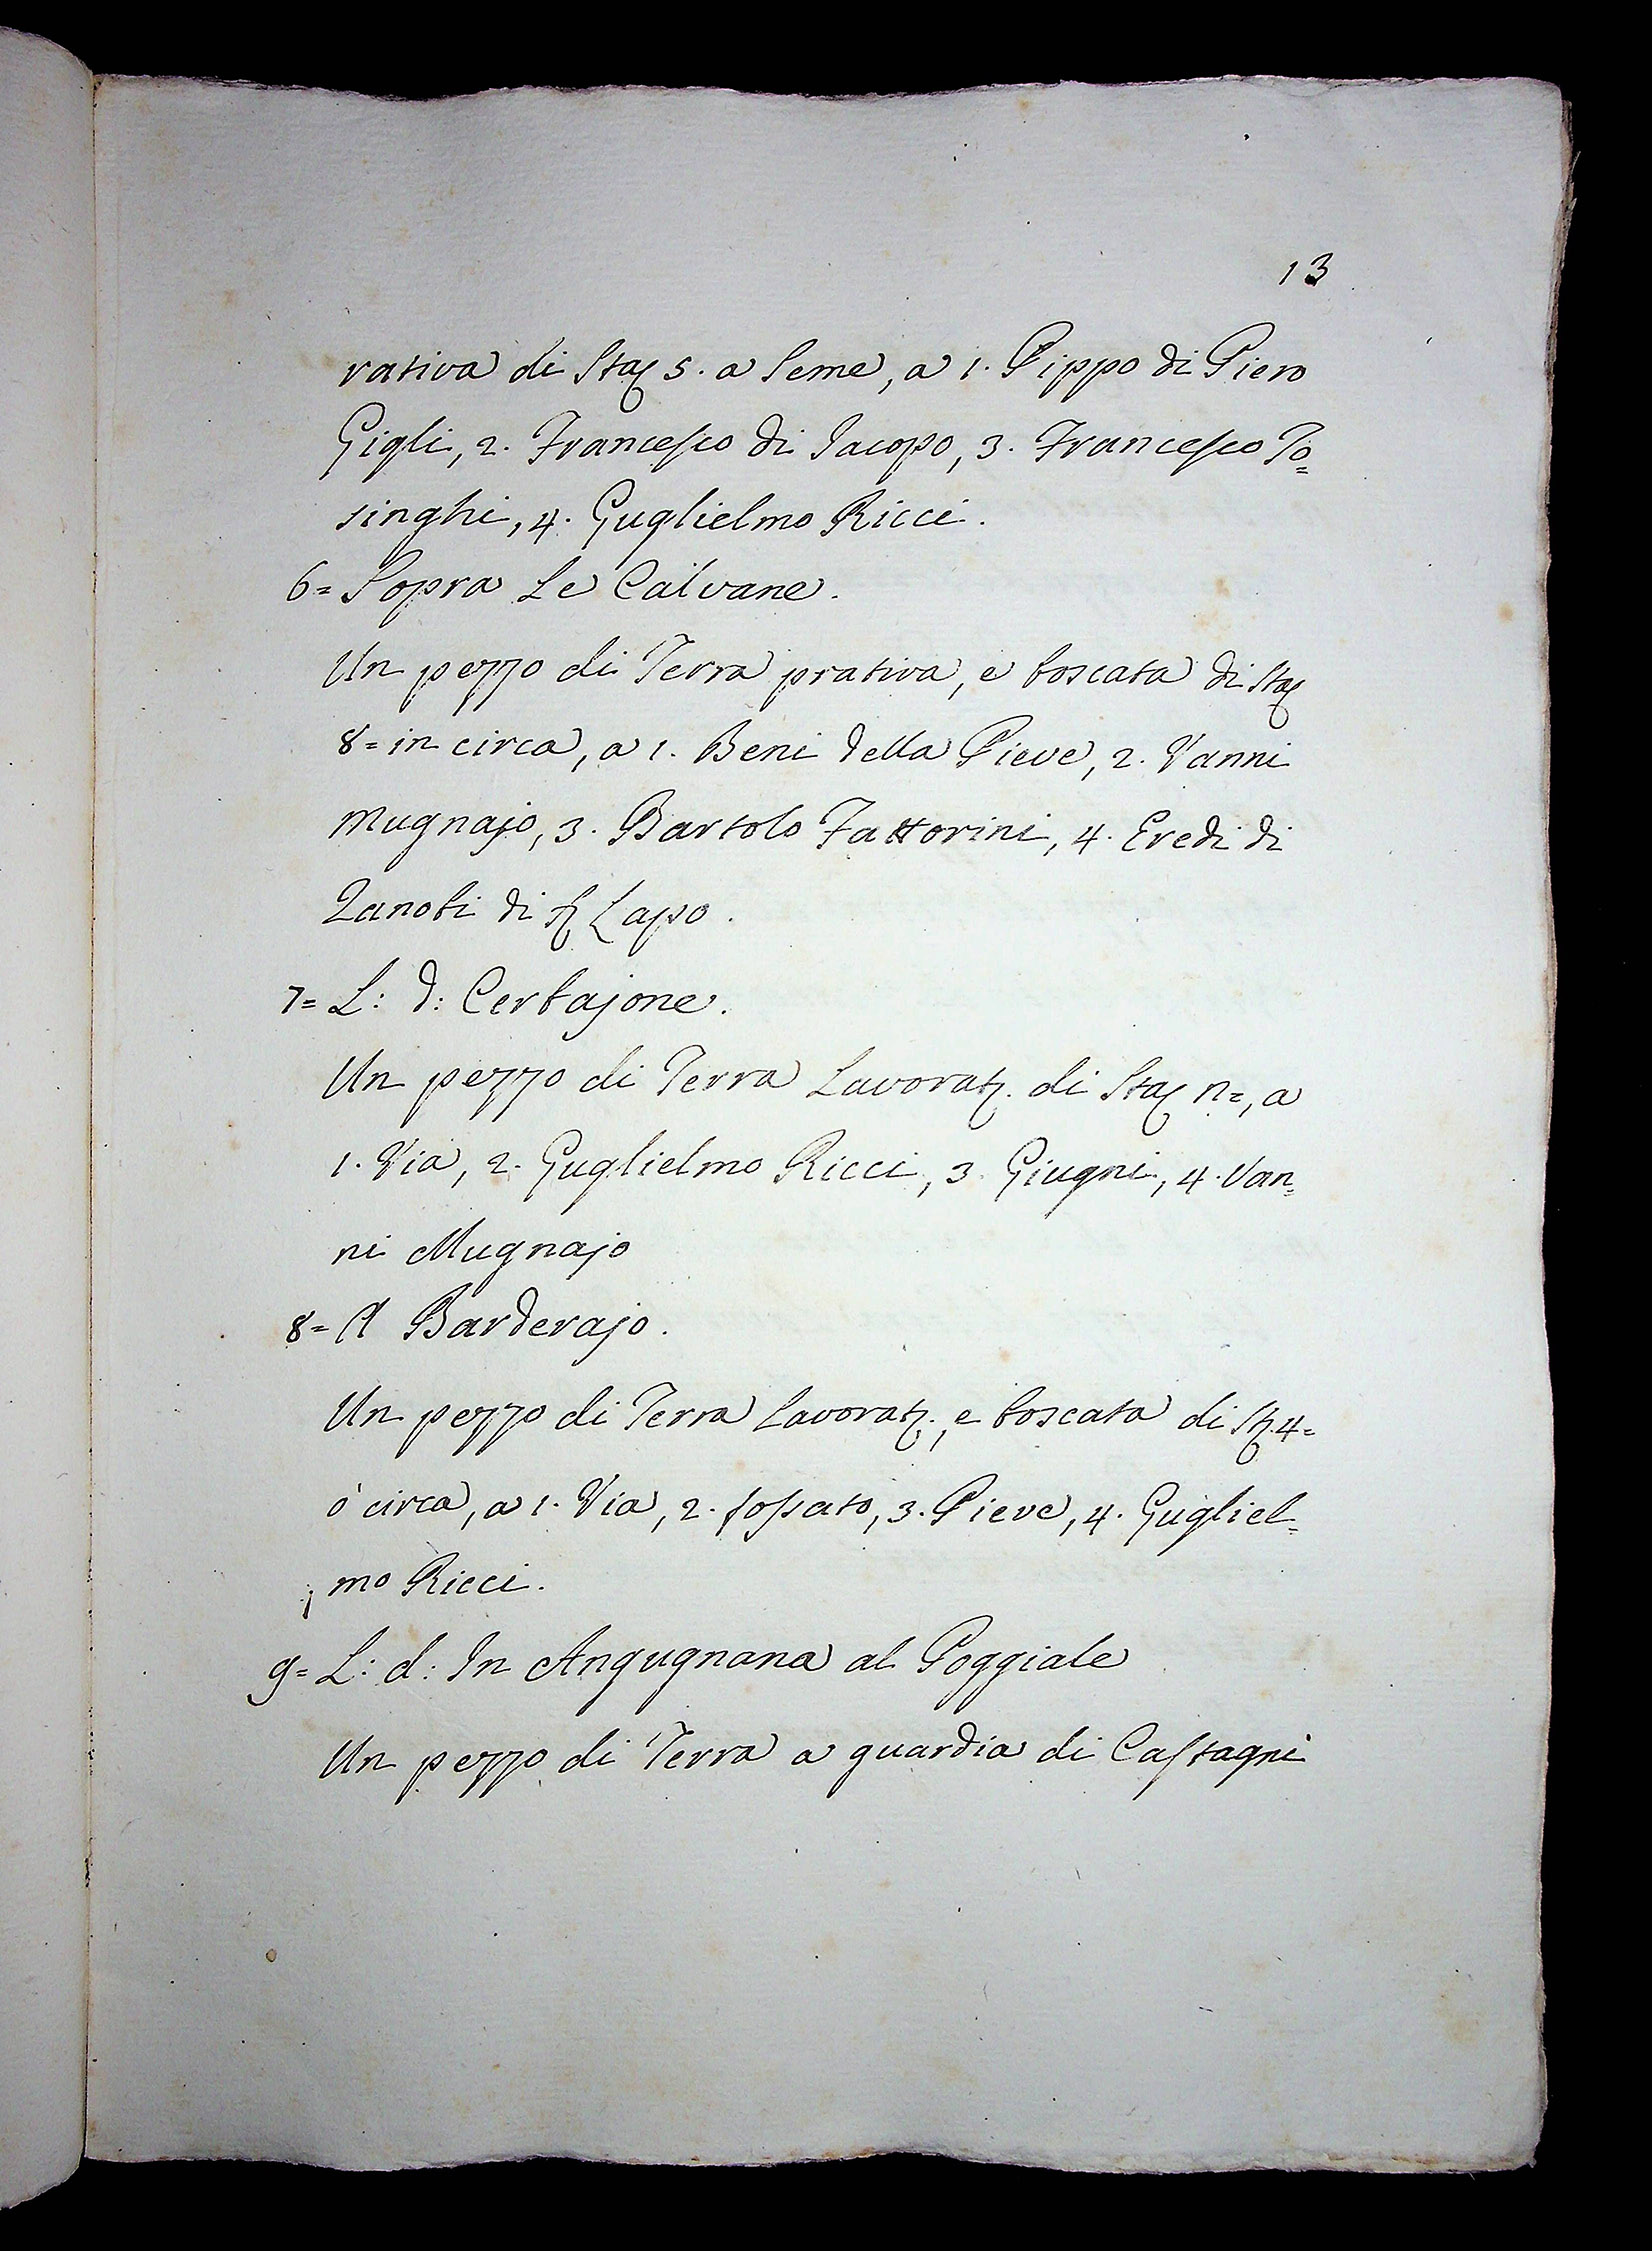 13
rativa di Staj 5. a Seme, a 1. Pippo di Piero
Gigli, 2. Francesco di Iacopo, 3. Francesco To=
singhi, 4. Guglielmo Ricci.
6= Sopra Le Calvane.
Un pezzo di Terra prativa, e boscata di Staj
8= in circa, a 1. Beni della Pieve, 2. Vanni
Mugnajo, 3. Bartolo Fattorini, 4. Eredi di
Zanobi di Lapo.
7= L: d: Cerbajone.
Un pezzo di Terra Lavorat. di Staj n=, a
1. Via, 2. Guglielmo Ricci, 3. Giugni, 4. Van=
ni Mugnajo
8= A Barderajo.
Un pezzo di Terra Lavorat., e boscata di St. 4=
ò circa, a 1. Via, 2. fossato, 3. Pieve, 4. Gugliel=
mo Ricci.
9= L: d: In Angugnana al Poggiale
Un pezzo di Terra a guardia di Castagni